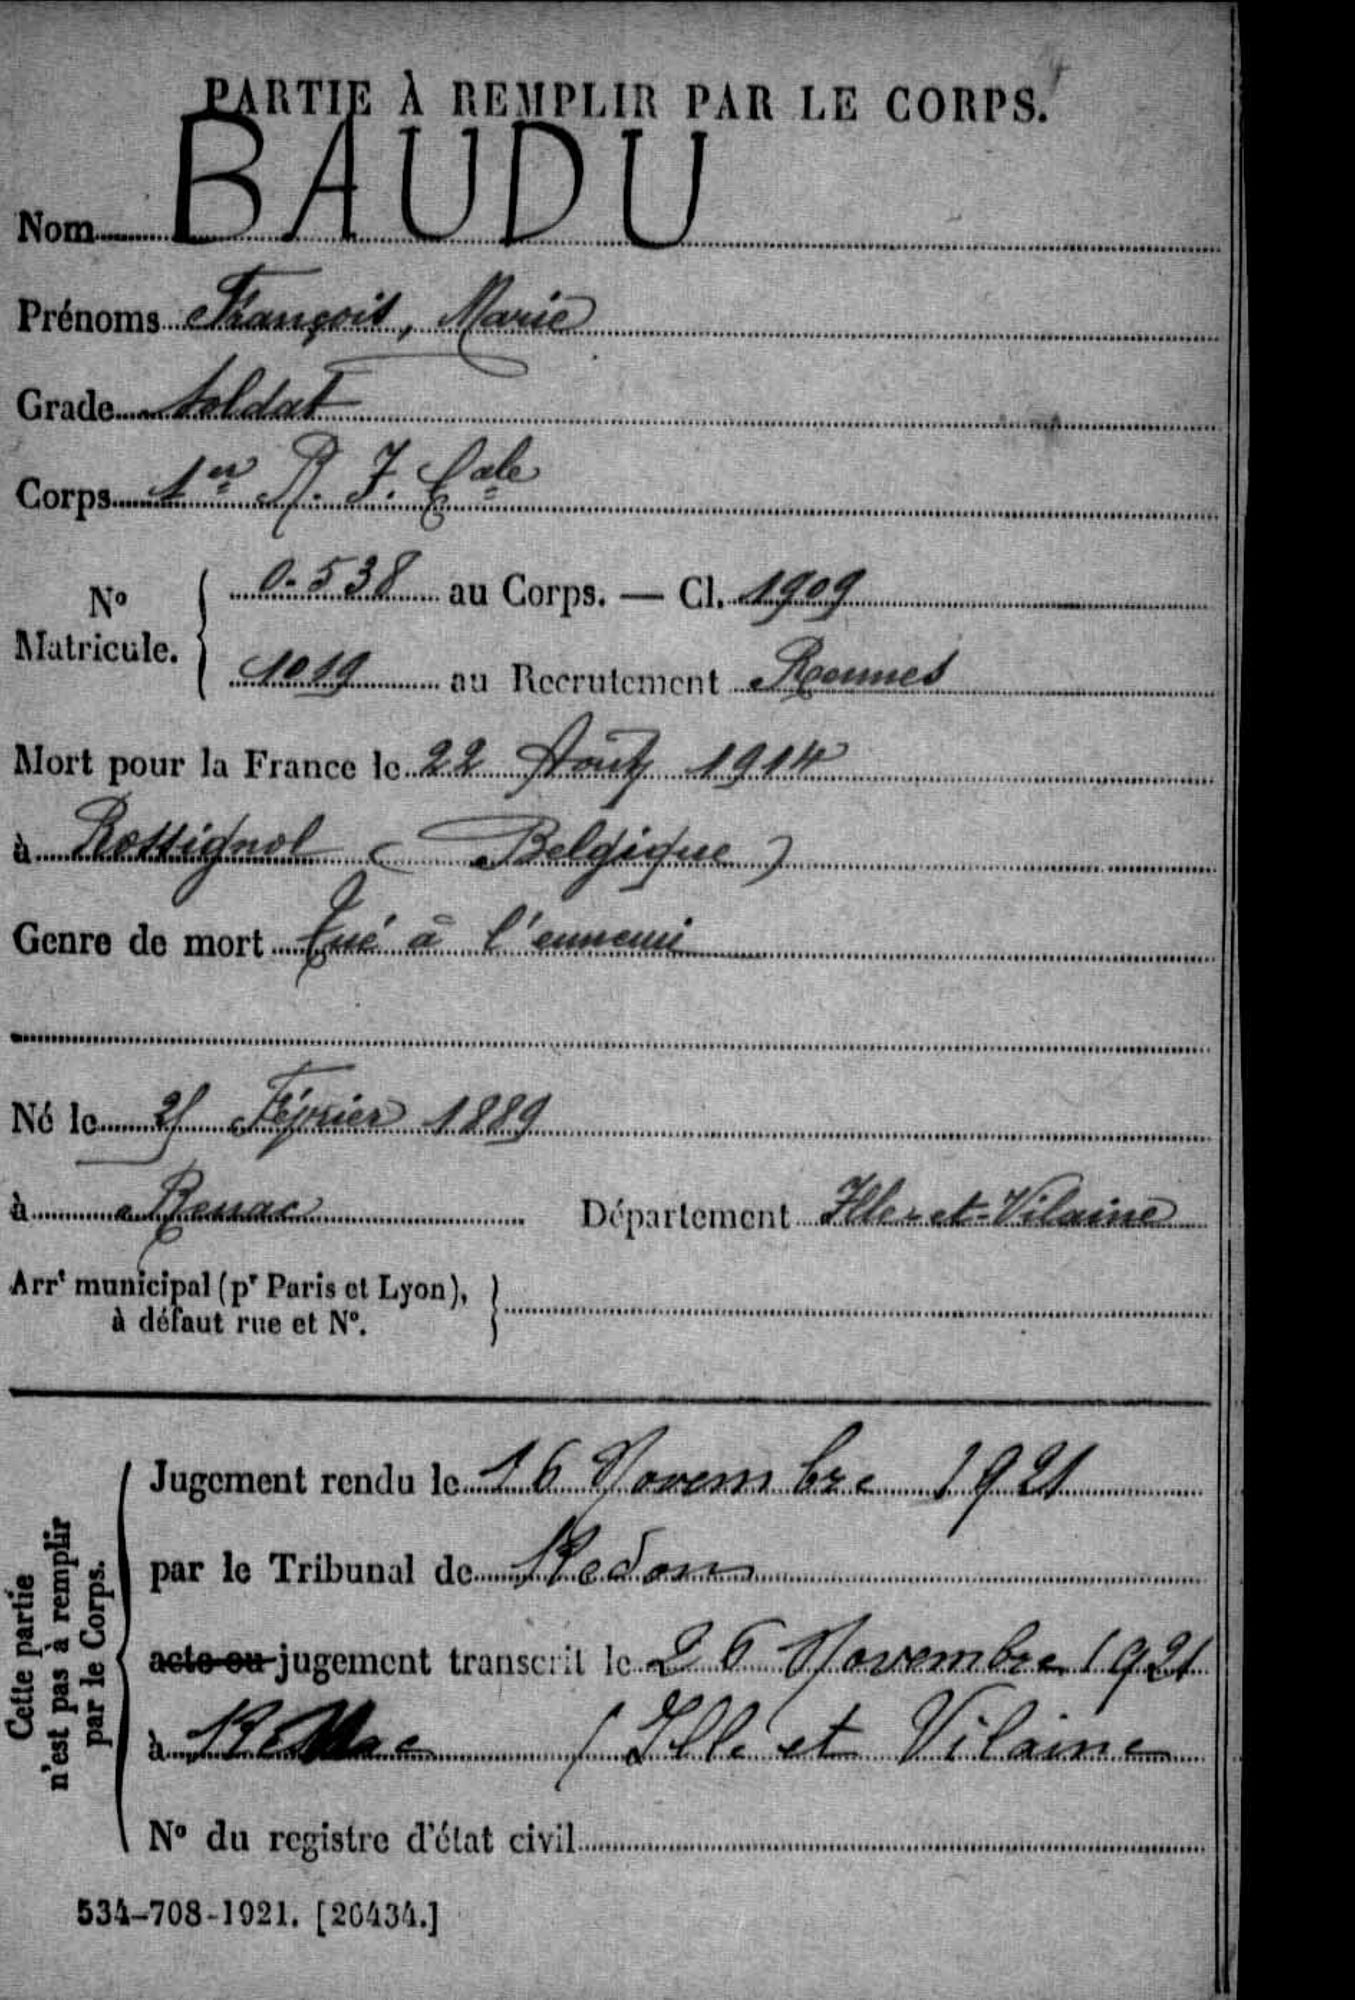 PARTIE À REMPLIR PAR LE CORPS.
Nom BAUDU
Prénoms François, Marie
Grade Soldat
Corps 1er R. I. Cale
No Matricule. { 0.538 au Corps. — Cl. 1909
1019 au Recrutement Rennes
Mort pour la France le 22 Août 1914
à Rossignol (Belgique)
Genre de mort Tué à l'ennemi
Né le Février 1889
à Renac Département Ille-et-Vilaine
Arrt municipal (pr Paris et Lyon), }
à défaut rue et No.
Cette partie
n'est pas à remplir
par le Corps.
Jugement rendu le 16 Novembre 1921
par le Tribunal de Redon
acte ou jugement transcrit le 26 Novembre 1921
à Renac / Ille et Vilaine
No du registre d'état civil
534-708-1921. [26434.]